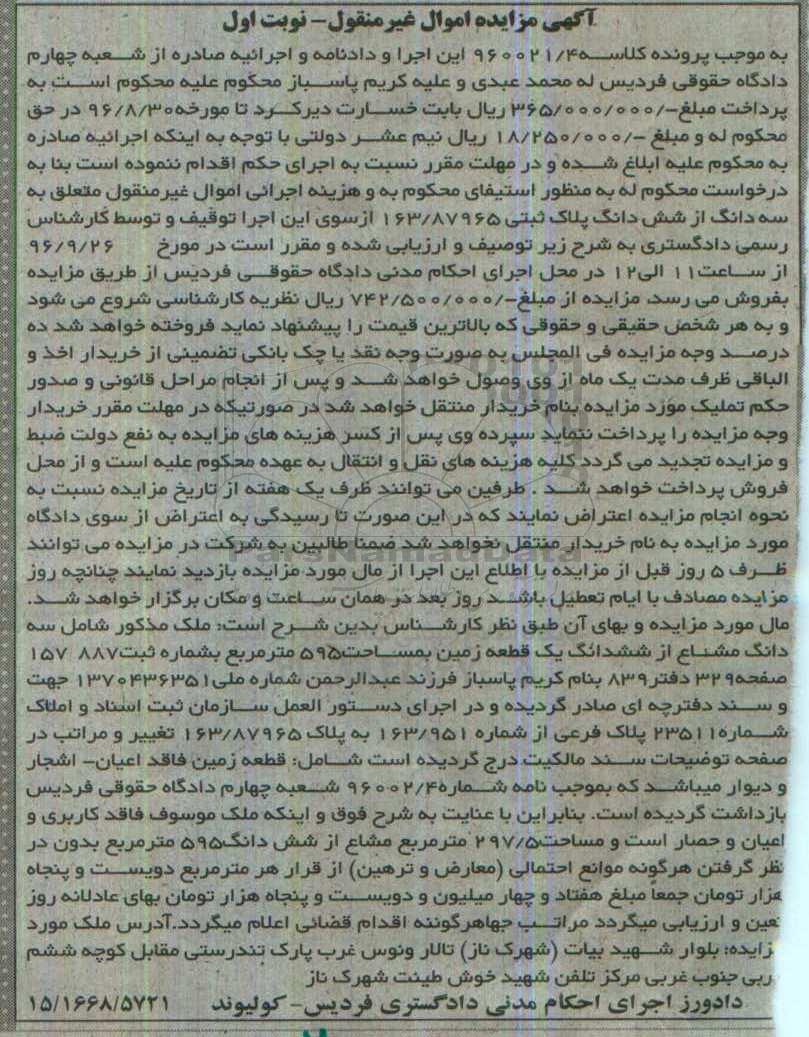 آگهی مزایده اموال غیرمنقول- نوبت اول
به موجب پرونده کلاسه۹۶۰۰۲۱/۴ این اجرا و دادنامه و اجرائیه صادره از شعبه چهارم
دادگاه حقوقی فردیس له محمد عبدی و علیه کریم پاسباز محکوم علیه محکوم است به
پرداخت مبلغ-/۳۶۵/۰۰۰/۰۰۰ ریال بابت خسارت دیرکرد تا مورخه۹۶/۸/۳۰ در حق
محکوم له و مبلغ -/۱۸/۲۵۰/۰۰۰ ریال نیم عشر دولتی با توجه به اینکه اجرائیه صادره
به محکوم علیه ابلاغ شده و در مهلت مقرر نسبت به اجرای حکم اقدام ننموده است بنا به
درخواست محکوم له به منظور استیفای محکوم به و هزینه اجرائی اموال غیرمنقول متعلق به
سه دانگ از شش دانگ پلاک ثبتی ۱۶۳/۸۷۹۶۵ ازسوی این اجرا توقیف و توسط کارشناس
رسمی دادگستری به شرح زیر توصیف و ارزیابی شده و مقرر است در مورخ ۹۶/۹/۲۶
از ساعت۱۱ الی۱۲ در محل اجرای احکام مدنی دادگاه حقوقی فردیس از طریق مزایده
بفروش می رسد، مزایده از مبلغ-/۷۴۲/۵۰۰/۰۰۰ ریال نظریه کارشناسی شروع می شود
و به هر شخص حقیقی و حقوقی که بالاترین قیمت را پیشنهاد نماید فروخته خواهد شد ده
درصد وجه مزایده فی المجلس به صورت وجه نقد یا چک بانکی تضمینی از خریدار اخذ و
الباقی ظرف مدت یک ماه از وی وصول خواهد شد و پس از انجام مراحل قانونی و صدور
حکم تملیک مورد مزایده بنام خریدار منتقل خواهد شد در صورتیکه در مهلت مقرر خریدار
وجه مزایده را پرداخت ننماید سپرده وی پس از کسر هزینه های مزایده به نفع دولت ضبط
و مزایده تجدید می گردد کلیه هزینه های نقل و انتقال به عهده محکوم علیه است و از محل
فروش پرداخت خواهد شد . طرفین می توانند ظرف یک هفته از تاریخ مزایده نسبت به
نحوه انجام مزایده اعتراض نمایند که در این صورت تا رسیدگی به اعتراض از سوی دادگاه
مورد مزایده به نام خریدار منتقل نخواهد شد ضمنا طالبین به شرکت در مزایده می توانند
ظرف ۵ روز قبل از مزایده با اطلاع این اجرا از مال مورد مزایده بازدید نمایند چنانچه روز
مزایده مصادف با ایام تعطیل باشد روز بعد در همان ساعت و مکان برگزار خواهد شد.
مال مورد مزایده و بهای آن طبق نظر کارشناس بدین شرح است: ملک مذکور شامل سه
دانگ مشاع از ششدانگ یک قطعه زمین بمساحت۵۹۵ مترمربع بشماره ثبت۸۸۷ ۱۵۷
صفحه۳۲۹ دفتر۸۳۹ بنام کریم پاسباز فرزند عبدالرحمن شماره ملی۱۳۷۰۴۳۶۳۵۱ جهت
و سند دفترچه ای صادر گردیده و در اجرای دستور العمل سازمان ثبت اسناد و املاک
شماره۲۳۵۱۱ پلاک فرعی از شماره ۱۶۳/۹۵۱ به پلاک ۱۶۳/۸۷۹۶۵ تغییر و مراتب در
صفحه توضیحات سند مالکیت درج گردیده است شامل: قطعه زمین فاقد اعیان- اشجار
و دیوار میباشد که بموجب نامه شماره۹۶۰۰۲/۴ شعبه چهارم دادگاه حقوقی فردیس
بازداشت گردیده است. بنابراین با عنایت به شرح فوق و اینکه ملک موسوف فاقد کاربری و
اعیان و حصار است و مساحت۲۹۷/۵ مترمربع مشاع از شش دانگ۵۹۵ مترمربع بدون در
نظر گرفتن هرگونه موانع احتمالی (معارض و ترهین) از قرار هر مترمربع دویست و پنجاه
هزار تومان جمعاً مبلغ هفتاد و چهار میلیون و دویست و پنجاه هزار تومان بهای عادلانه روز
تعین و ارزیابی میگردد مراتب جهاهرگوننه اقدام قضائی اعلام میگردد.آدرس ملک مورد
مزایده: بلوار شهید بیات (شهرک ناز) تالار ونوس غرب پارک تندرستی مقابل کوچه ششم
غربی جنوب غربی مرکز تلفن شهید خوش طینت شهرک ناز
دادورز اجرای احکام مدنی دادگستری فردیس- کولیوند ۱۵/۱۶۶۸/۵۷۲۱
ParsNamadData